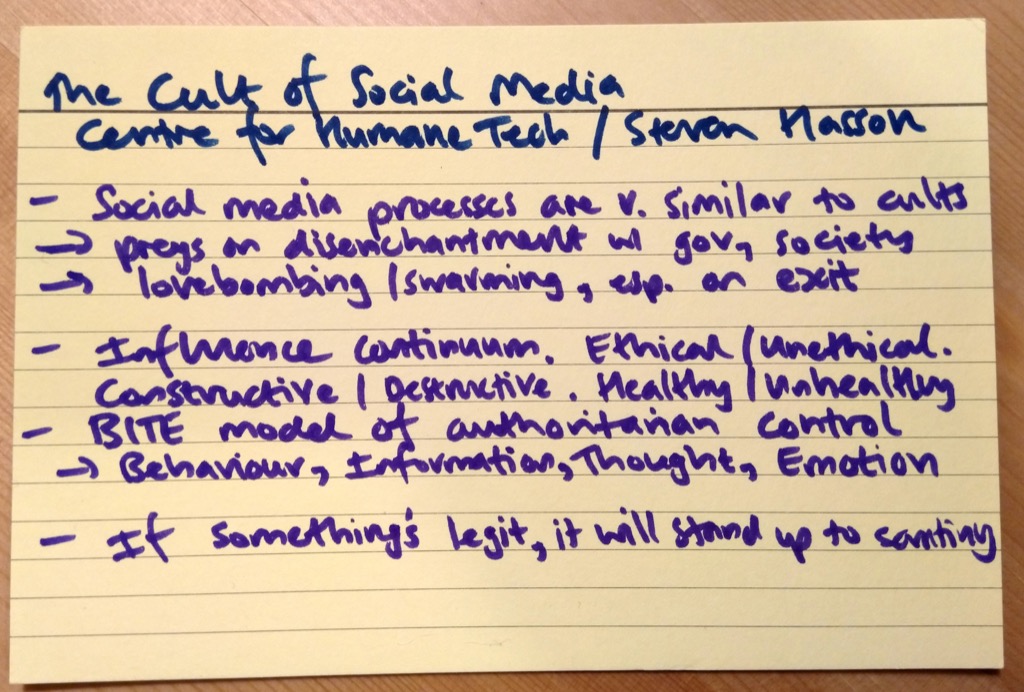 The Cult of Social Media
Centre for Humane Tech / Steven Hasson
- Social media processes are v. similar to cults
→ preys on disenchantment w/ gov, society
→ lovebombing / swarming, esp. on exit
- Influence continuum. Ethical / Unethical.
Constructive / Destructive. Healthy / Unhealthy
- BITE model of authoritarian control
→ Behaviour, Information, Thought, Emotion
- If something's legit, it will stand up to scrutiny